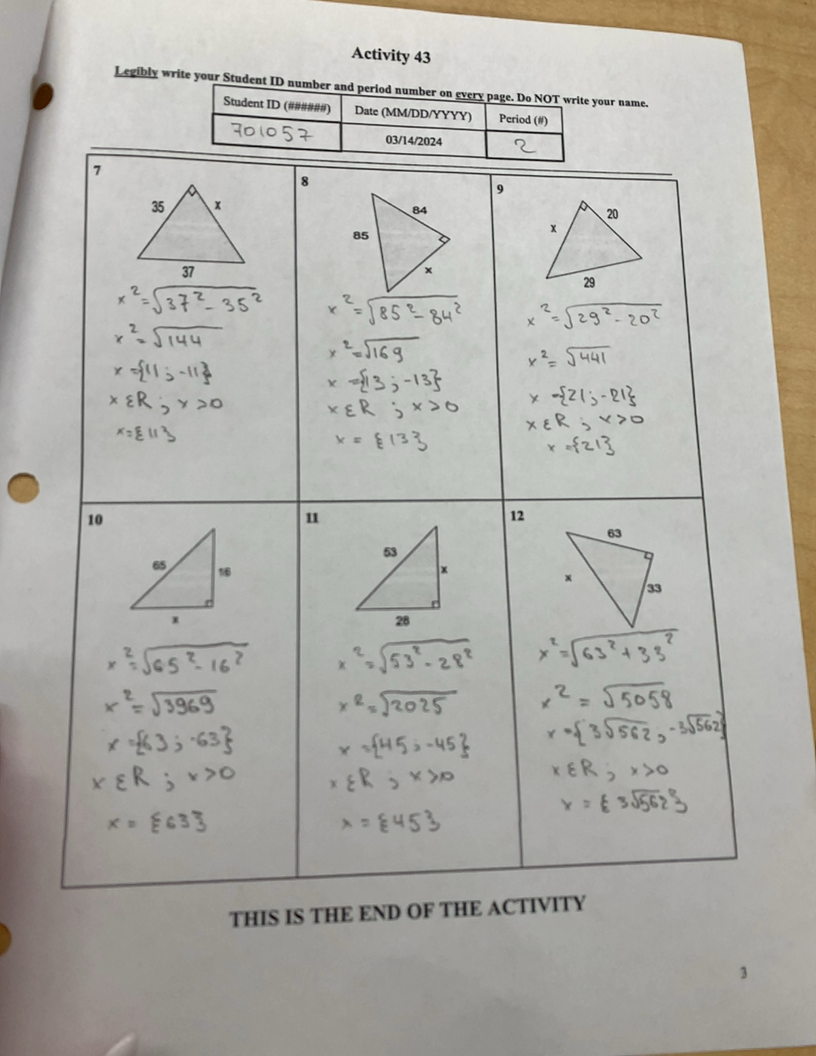 Activity 43
Legibly write your Student ID number and period number on every page. Do NOT write your name.
Student ID (######) Date (MM/DD/YYYY) Period (#)
701057 03/14/2024 2
7
35 x
37
x² = √37² - 35²
x² = √144
x = {11 ; -11}
x ε R ; x > 0
x = {11}
8
84
85
x
x² = √85² - 84²
x² = √169
x = {13 ; -13}
x ε R ; x > 0
x = {13}
9
20
x
29
x² = √29² - 20²
x² = √441
x = {21 ; -21}
x ε R ; x > 0
x = {21}
10
65 16
x
x² = √65² - 16²
x² = √3969
x = {63 ; -63}
x ε R ; x > 0
x = {63}
11
53
x
28
x² = √53² - 28²
x² = √2025
x = {45 ; -45}
x ε R ; x > 0
x = {45}
12
63
x
33
x² = √63² + 33²
x² = √5058
x = {3√562 ; -3√562}
x ε R ; x > 0
x = {3√562}
THIS IS THE END OF THE ACTIVITY
3